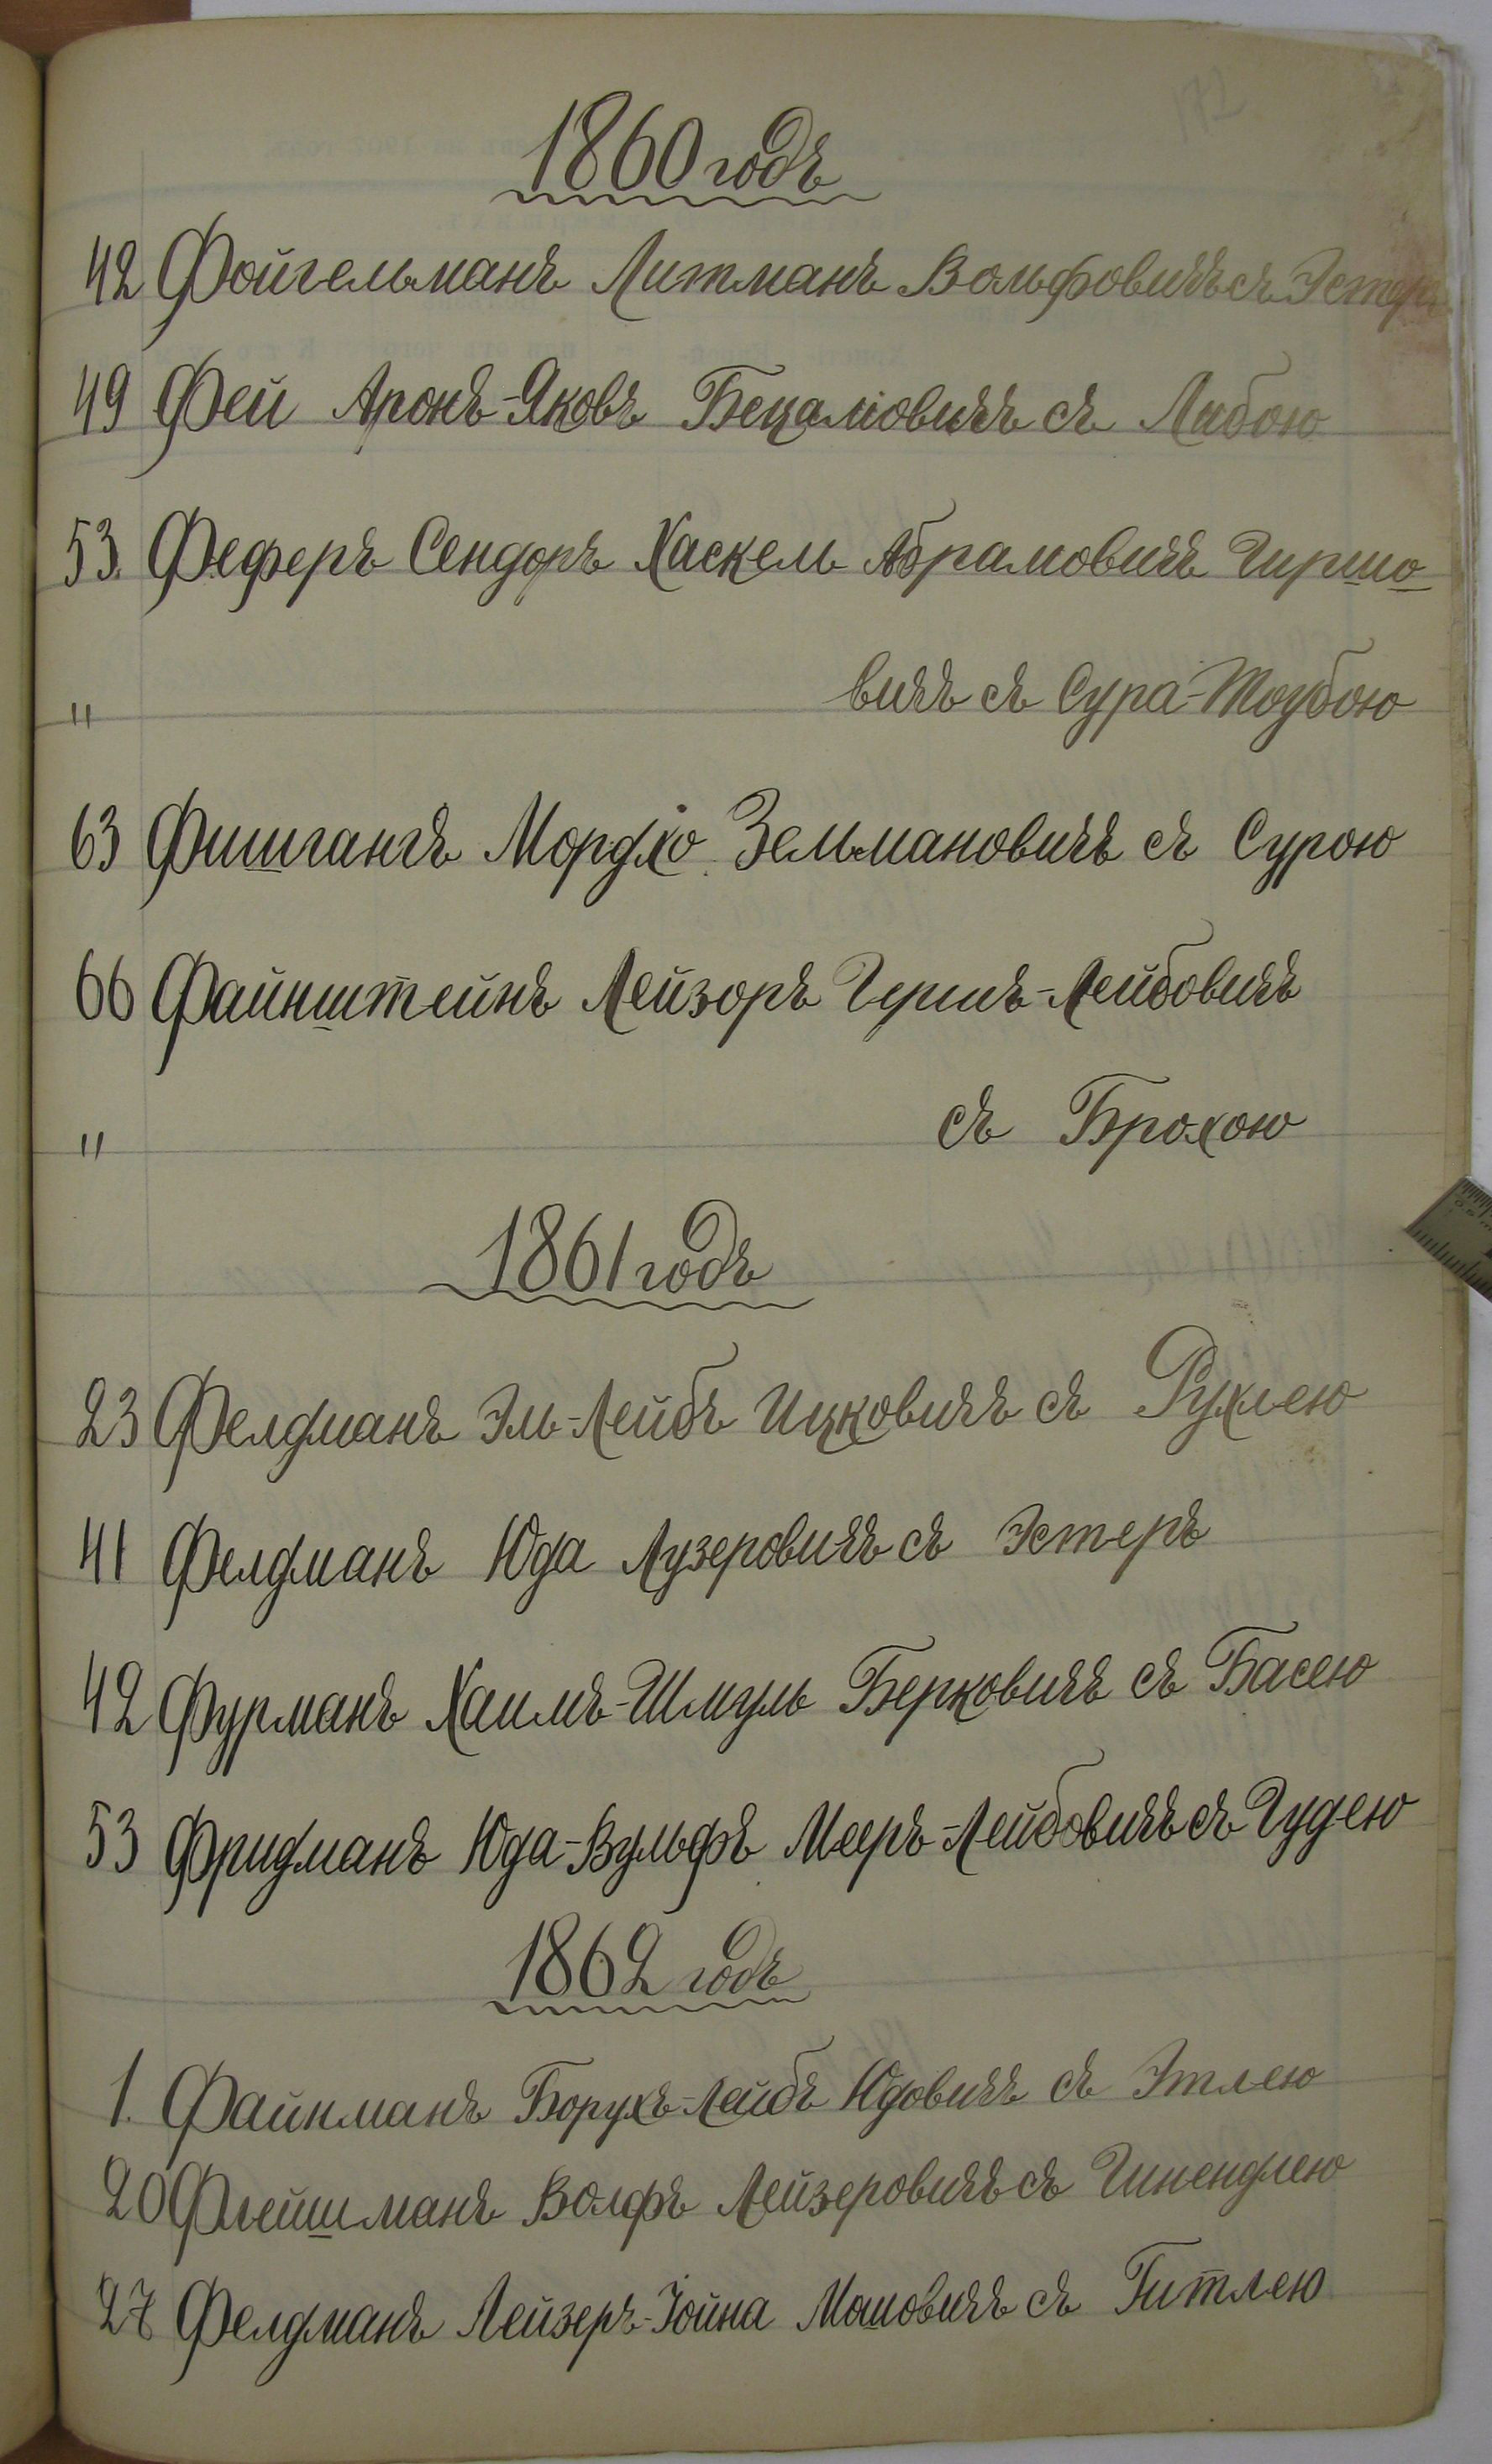 1860 годъ
42 Фойгельманъ Литманъ Вольфовичъ съ Эстеръ
49 Фей Аронъ-Яковъ Бецаліовичъ съ Либою
53. Феферъ Сендоръ Хаскель Абрамовичъ Гиршо
" вичъ съ Сура-Тоубою
63 Фишгангъ Мордхо Зельмановичъ съ Сурою
66 Файнштейнъ Лейзоръ Гершъ-Лейбовичъ
" съ Брохою
1861 годъ
23 Фелдманъ Эль-Лейбъ Ицковичъ съ Рухлею
41 Фелдманъ Юда Лузеровичъ съ Эстеръ
42 Фурманъ Хаимъ-Шмуль Берковичъ съ Басею
53 Фридманъ Юда-Вульфъ Мееръ-Лейбовичъ съ Гудею
1862 годъ
1. Файнманъ Борухъ-Лейбъ Юдовичъ съ Этлею
20 Флейшманъ Волфъ Лейзеровичъ съ Шнендлею
27 Фелдманъ Лейзеръ-Іойна Мошовичъ съ Гитлею